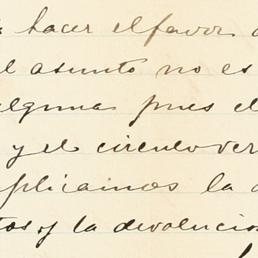 hacer el favor d
el asunto no es
alguna pues el
y el circulo ver
plicamos la d
tos y la devolucio